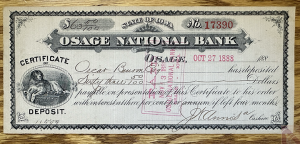 STATE OF IOWA.
No. 17390
OSAGE NATIONAL BANK
CERTIFICATE
OSAGE, OCT 27 1888 188
Oscar
has deposited
Sixty three
Dollars
payable on presentation of this Certificate to his order
with interest at three per cent per annum if left four months
OF
DEPOSIT.
Cashier